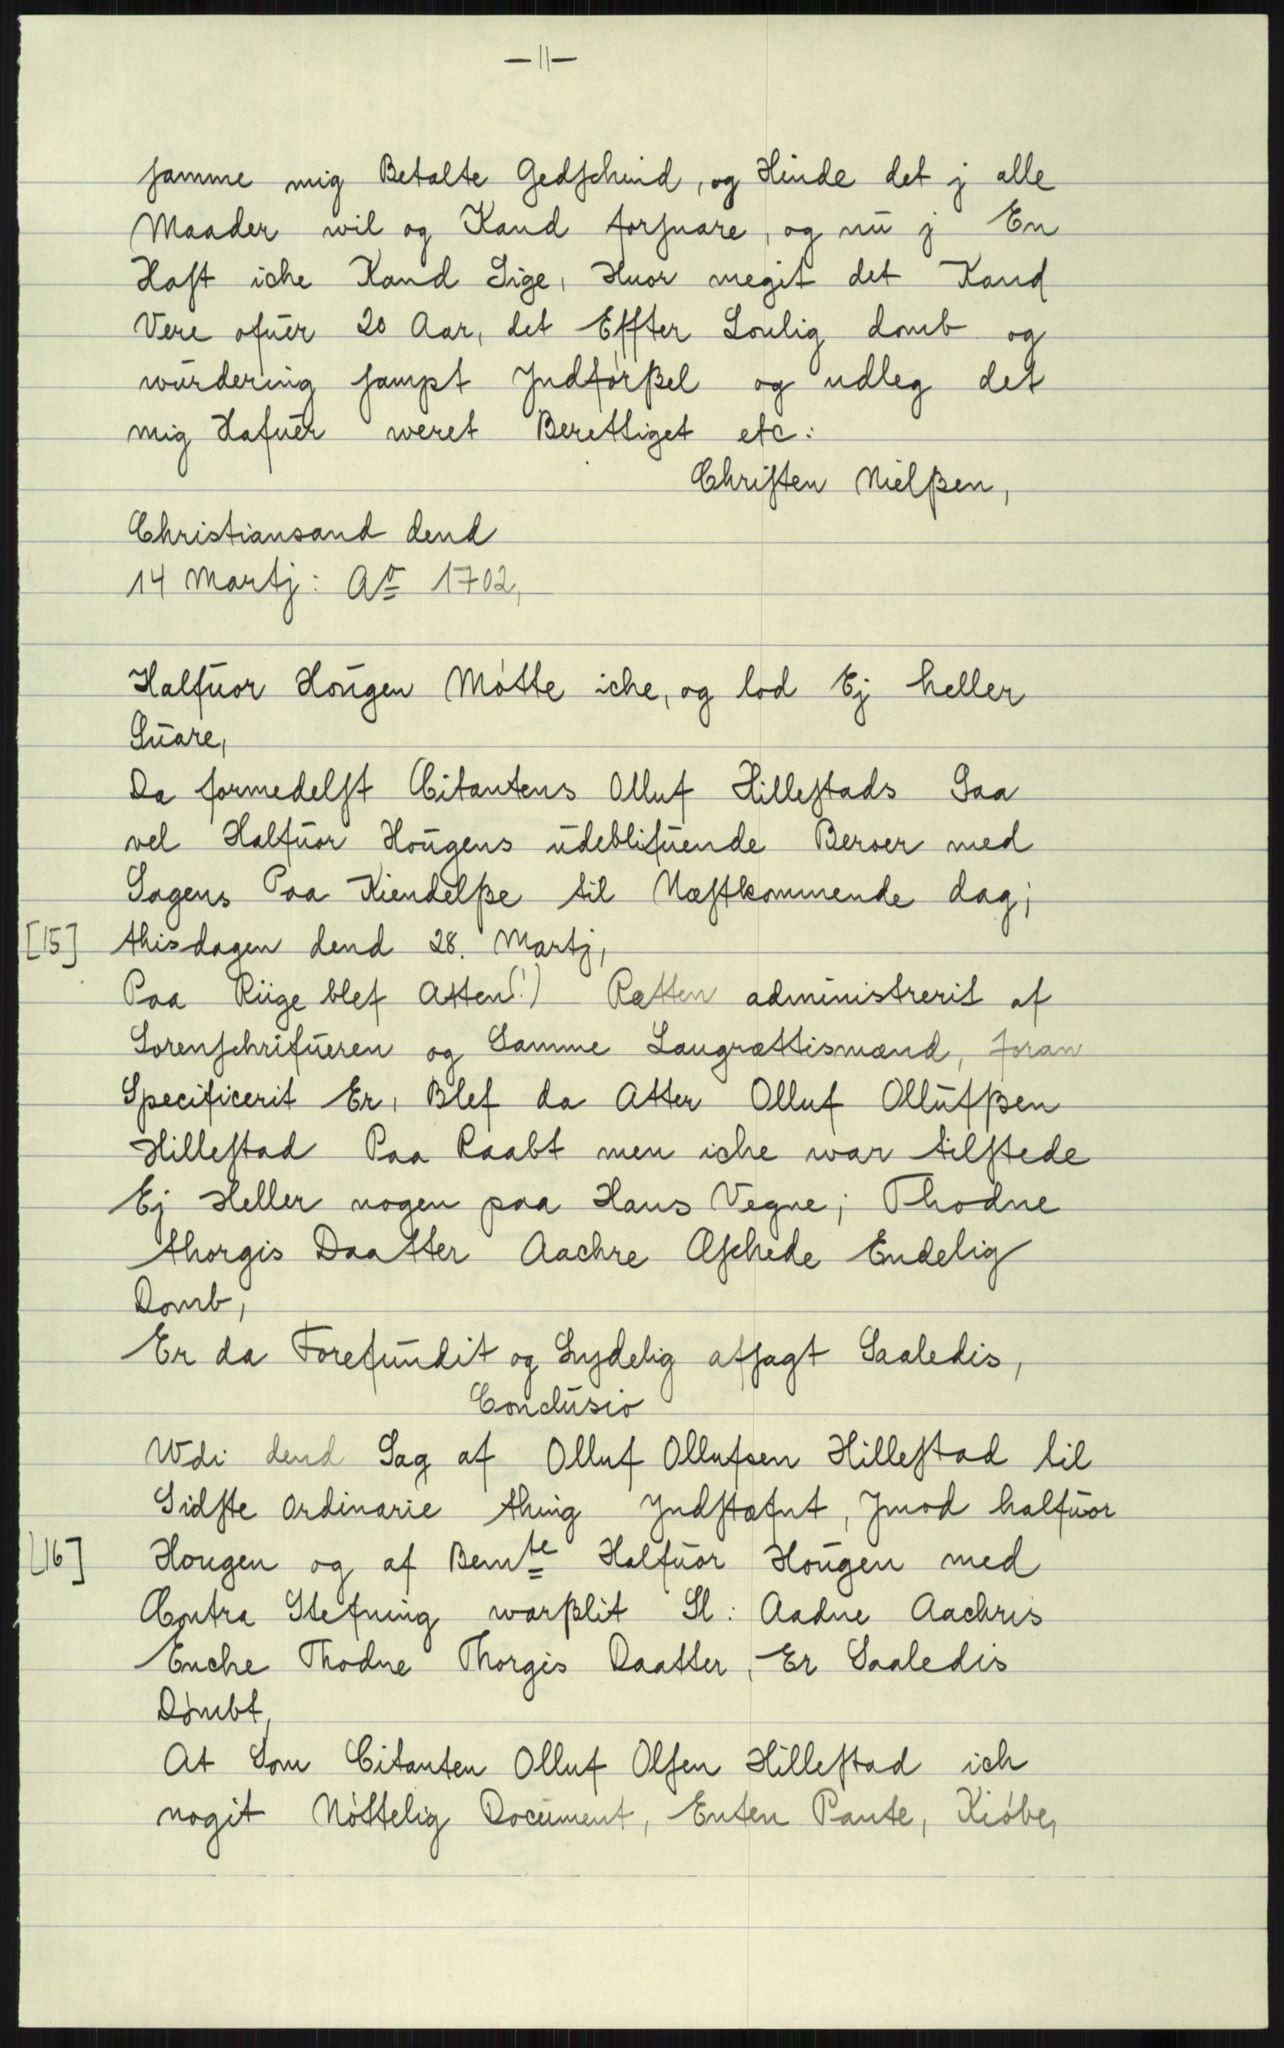 — 11 —
samme mig Betalte Gedschind, og Hinde det j alle
Maader wil og Kand forsuare, og nu j En
Hast iche Kand Sige, Huor megit det Kand
Vere ofuer 20 Aar, det Effter Loulig domb og
wurdering sampt Jndførßel og udleg det
mig Hafuer weret Berettiget etc:
Christen Nielßen,
Christiansand dend
14 Martj: Ao 1702,
Halfuor Hougen Møtte iche, og lod Ej heller
Suare,
Da formedelst Citantens Olluf Hillestads Saa
vel Halfuor Hougens udeblifuende Beroer med
Sagens Paa Kiendelße til Næstkommende dag;
[15] thisdagen dend 28. Martj,
Paa Riige blef Atten(!) Rætten administrerit af
Sorenschrifueren og Samme Laugrættismænd, foran
Specificerit Er, Blef da Atter Olluf Ollufßen
Hillestad Paa Raabt men iche war tilstede
Ej Heller nogen paa Hans Vegne; Thodne
thorgis Daatter Aachre Æschede Endelig
Domb,
Er da Forefundit og Lydelig afsagt Saaledis,
Conclusio
Vdi dend Sag af Olluf Ollufsen Hillestad til
Sidste ordinarie thing Jndstæfnt, Jmod halfuor
[16] Hougen og af Bemte Halfuor Hougen med
Contra Stefning warßlit Sl: Aadne Aachris
Enche Thodne Thorgis Daatter, Er Saaledis
Dømbt,
At Som Citanten Olluf Olsen Hillestad ich
nogit Nøttelig Document, Enten Pante, Kiøbe,